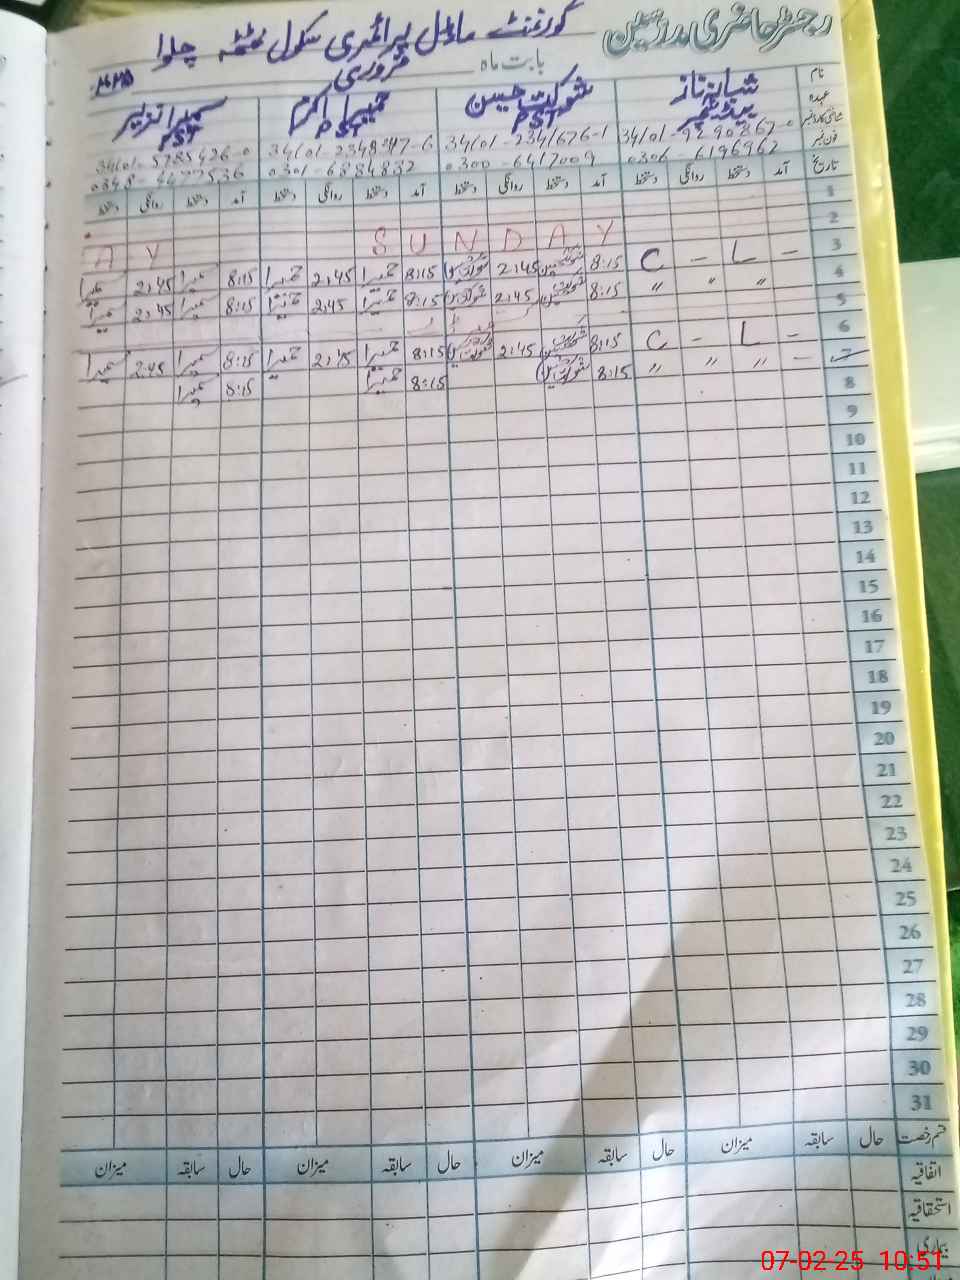 رجسٹر حاضری مدرسین گورنمنٹ ماڈل پرائمری سکول بھٹہ چلوا
بابت ماہ فروری
نام شبانہ ناز شوکت حسین حمیرا اکرم سمیرا نذیر
عہدہ ہیڈ ٹیچر PST PST PST
شناختی کارڈ نمبر 34101-2341676-1 34101-5785426-0
فون نمبر 0306-6196962 0300-6417009 0301-6884832 0348-4477536
تاریخ آمد دستخط روانگی دستخط آمد دستخط روانگی دستخط آمد دستخط روانگی دستخط آمد دستخط روانگی دستخط
1
2 S U N D A Y A Y
3 - L - C 8:15 2:45 8:15 2:45 8:15 2:45
4 〃 〃 〃 8:15 2:45 8:15 2:45 8:15 2:45
5
6 - L - C 8:15 2:45 8:15 2:45 8:15 2:45
7 - 〃 〃 〃 8:15 8:15 8:15
8
9
10
11
12
13
14
15
16
17
18
19
20
21
22
23
24
25
26
27
28
29
30
31
قسم رخصت حال سابقہ میزان حال سابقہ میزان حال سابقہ میزان حال سابقہ میزان
اتفاقیہ
استحقاقیہ
بیماری
07-02-25 10:51